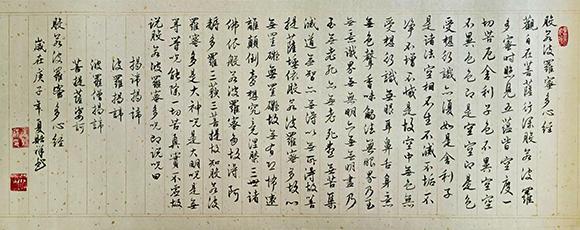 般若波羅蜜多心經
觀自在菩薩行深般若波羅
蜜多時照見五蘊皆空度一
切苦厄舍利子色不異空空
不異色色即是空空即是色
受想行識亦復如是舍利子
是諸法空相不生不滅不垢不
淨不增不減是故空中無色無
受想行識無眼耳鼻舌身意
無色聲香味觸法無眼界乃至
無意識界無無明亦無無明盡乃
至無老死亦無老死盡無苦集
滅道無智亦無得以無所得故菩
提薩埵依般若波羅蜜多故心
無罣礙無罣礙故無有恐怖遠
離顛倒夢想究竟涅槃三世諸
佛依般若波羅蜜多故得阿
耨多羅三藐三菩提故知般若波
羅蜜多是大神呪是大明呪是無
等等呪能除一切苦真實不虛故
說般若波羅蜜多呪即說呪曰
揭諦揭諦
波羅揭諦
波羅僧揭諦
菩提薩婆訶
般若波羅蜜多心經
歲在庚子年夏